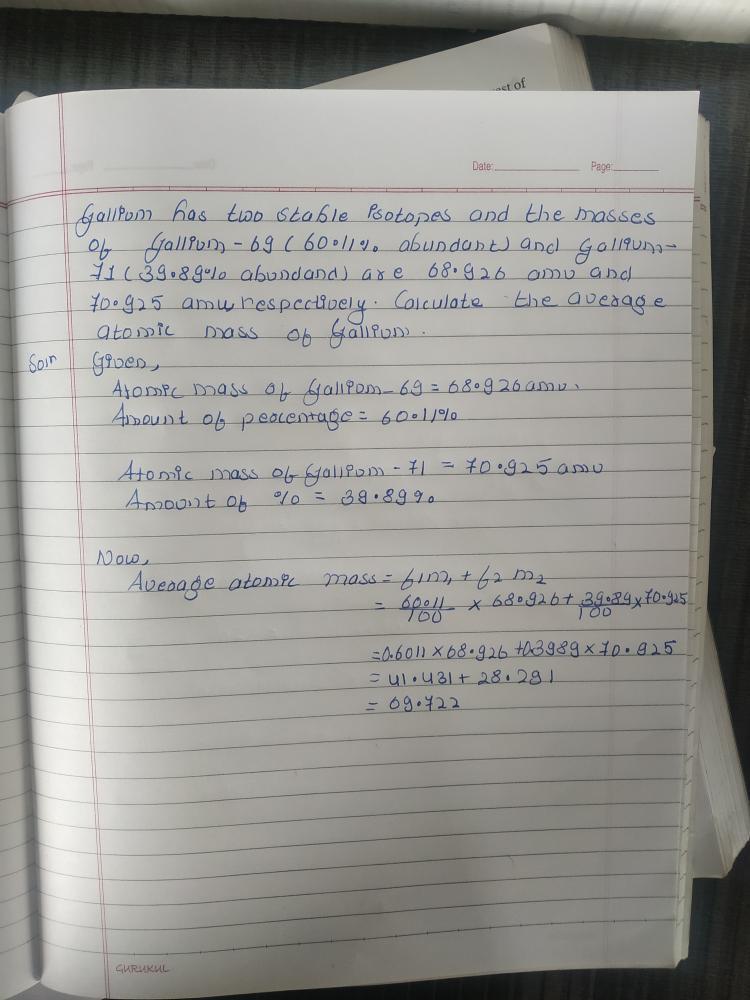 est of
Date: Page:
Gallium has two stable isotopes and the masses
of Gallium-69 (60.11% abundant) and Gallium-
71 (39.89% abundand) are 68.926 amu and
70.925 amu respectively. Calculate the average
atomic mass of Gallium.
Soln Given,
Atomic mass of Gallium-69 = 68.926 amu.
Amount of pecentage = 60.11%
Atomic mass of Gallium-71 = 70.925 amu
Amount of % = 39.89%
Now,
Average atomic mass = f1m1 + f2 m2
= 60.11/100 × 68.926 + 39.89/100 × 70.925
= 0.6011 × 68.926 + 0.3989 × 70.925
= 41.431 + 28.291
= 69.722
GURUKUL